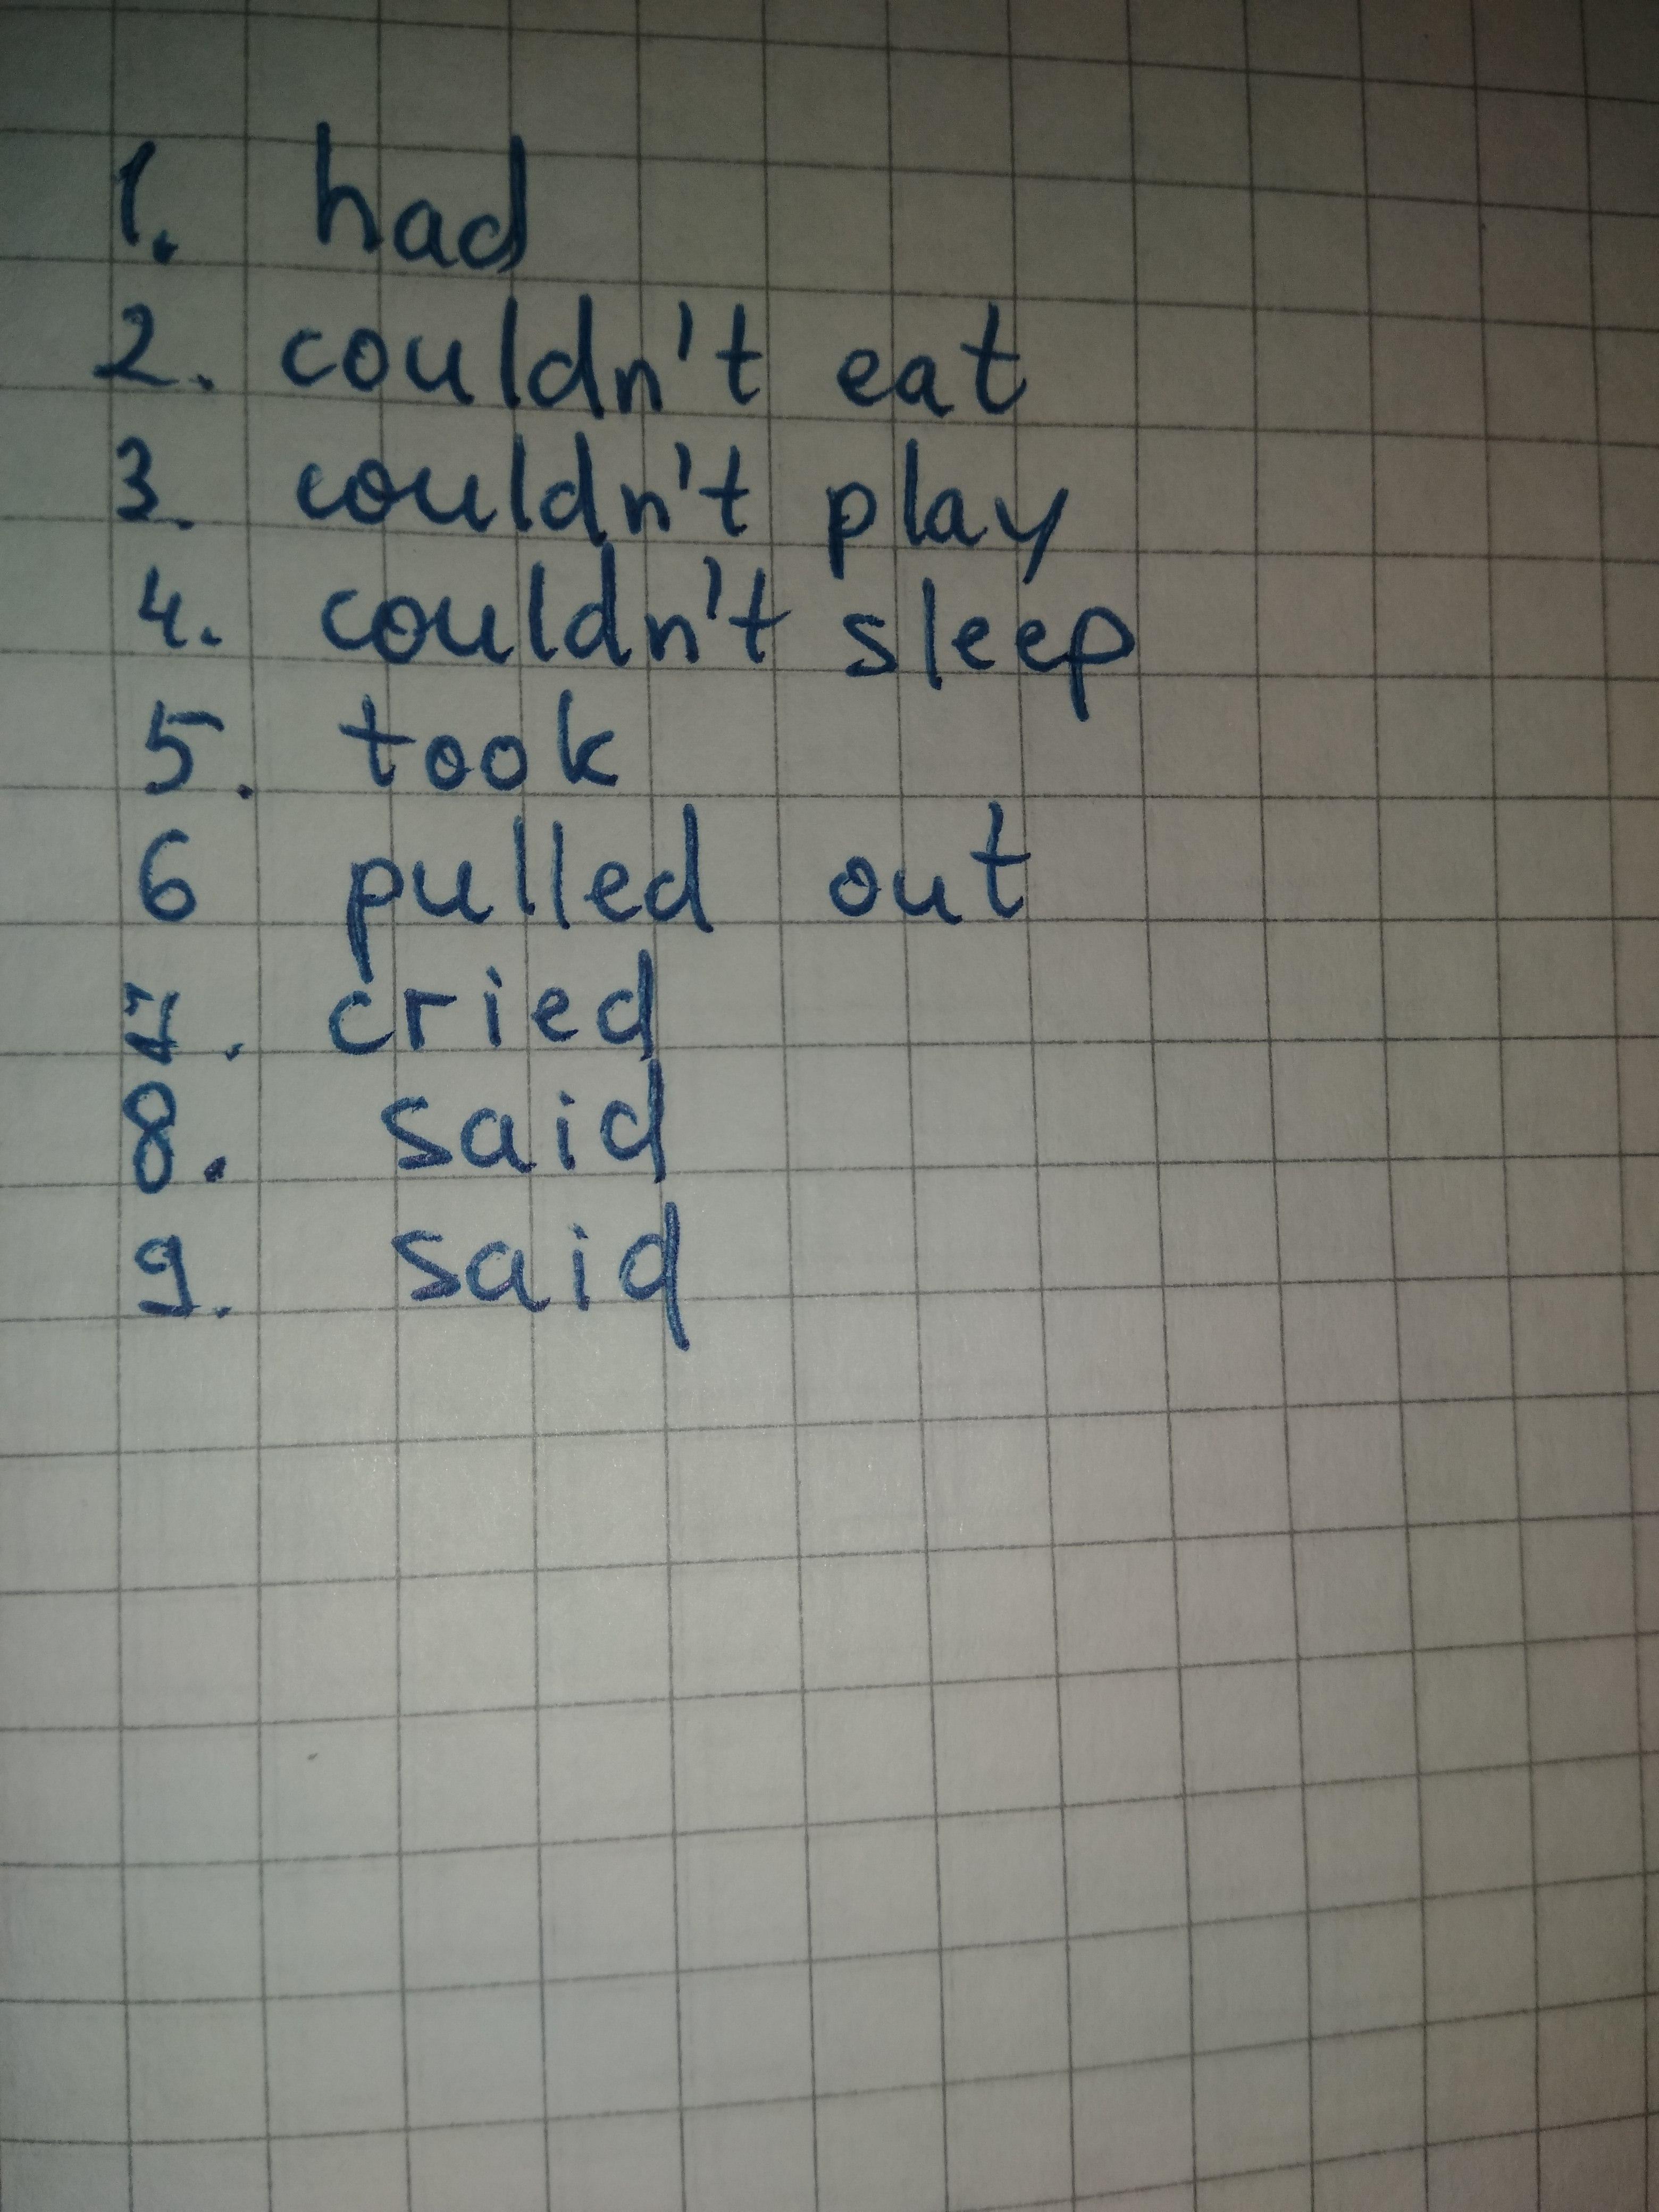 1. had
2. couldn't eat
3. couldn't play
4. couldn't sleep
5. took
6 pulled out
7. cried
8. said
9. said